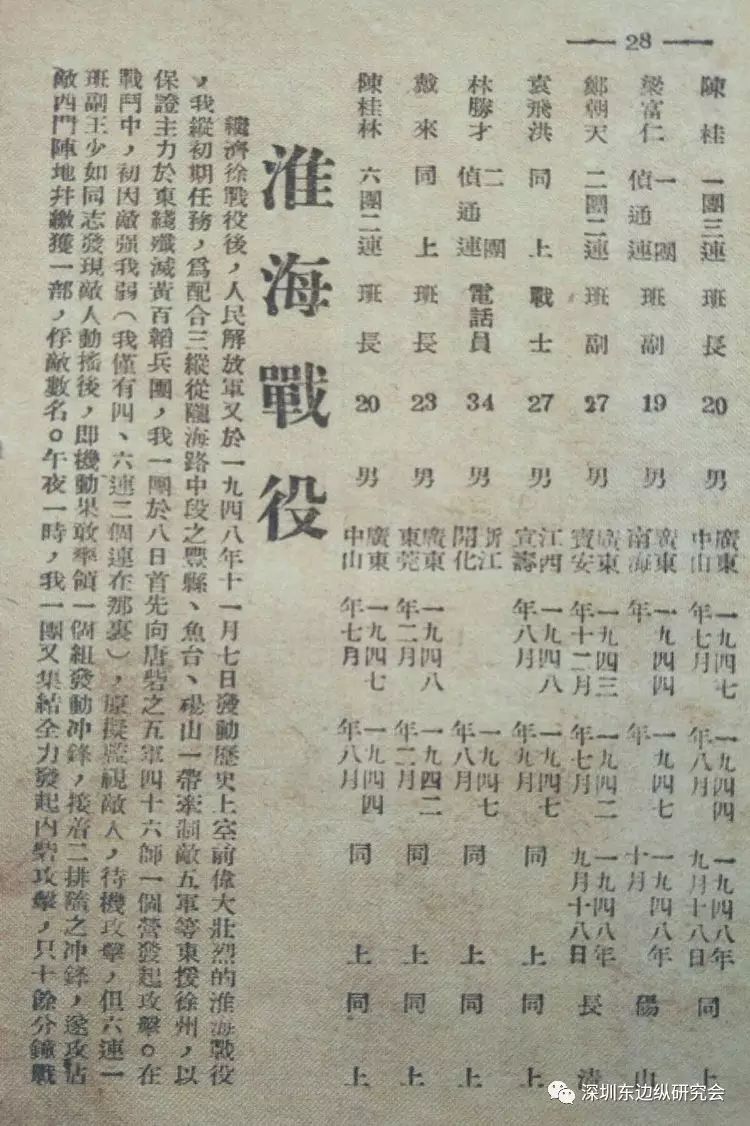 — 28 —
陳桂 一團三連 班長 20 男 廣東中山 一九四七年七月 一九四四年八月 一九四八年九月十八日 同上
梁富仁 一團偵通連 班副 19 男 廣東南海 一九四四年 一九四七年 一九四八年十月 陽山
鄭朝天 二團二連 班副 27 男 廣東寶安 一九四三年十二月 一九四二年七月 一九四八年九月十八日 長清
袁飛洪 同上 戰士 27 男 江西宜壽 一九四八年八月 一九四七年九月 同上 同上
林勝才 二團偵通連 電話員 34 男 浙江開化 一九四七年八月 同上 同上
戴來 同上 班長 23 男 廣東東莞 一九四八年二月 一九四二年二月 同上 同上
陳桂林 六團二連 班長 20 男 廣東中山 一九四七年七月 一九四四年八月 同上 同上
淮海戰役
繼濟徐戰役後，人民解放軍又於一九四八年十一月七日發動歷史上空前偉大壯烈的淮海戰役
，我縱初期任務，爲配合三縱從隴海路中段之豐縣、魚台、碭山一帶牽制敵五軍等東援徐州，以
保證主力於東綫殲滅黃百韜兵團，我一團於八日首先向唐砦之五軍四十六師一個營發起攻擊。在
戰鬥中，初因敵强我弱（我僅有四、六連二個連在那裏），原擬監視敵人，待機攻擊，但六連一
班副王少如同志發現敵人動搖後，即機動果敢率領一個組發動冲鋒，接着二排隨之冲鋒，遂攻佔
敵西門陣地幷繳獲一部，俘敵數名。午夜一時，我一團又集結全力發起内砦攻擊，只十餘分鐘戰
深圳东边纵研究会